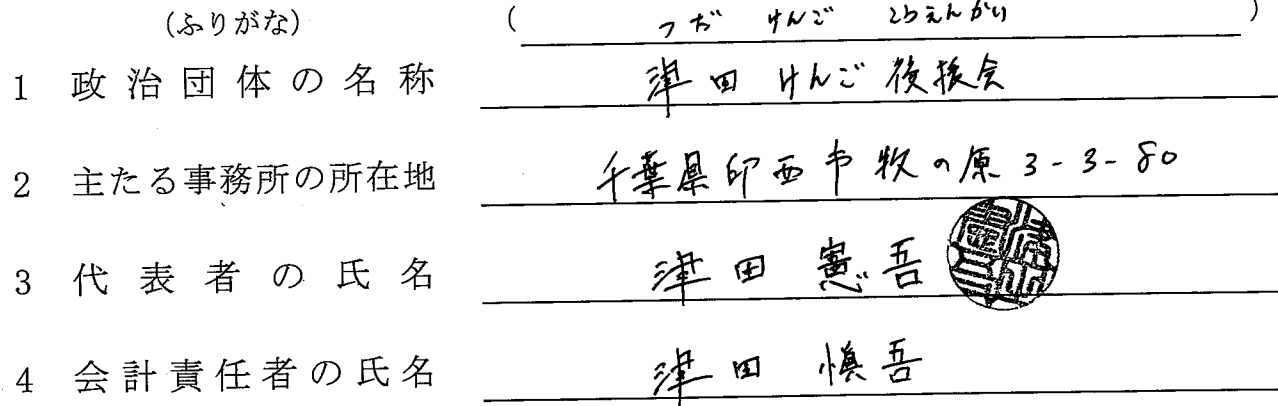 (ふりがな) ( つだ けんご こうえんかい )
1 政治団体の名称 津田けんご後援会
2 主たる事務所の所在地 千葉県印西市牧の原3-3-80
3 代表者の氏名 津田憲吾
4 会計責任者の氏名 津田慎吾